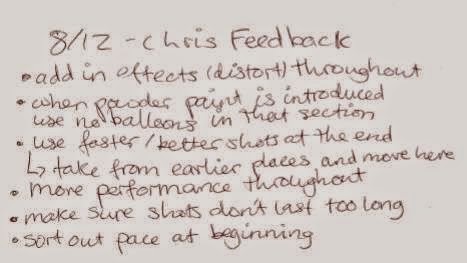 8/12 - Chris Feedback
• add in effects (distort) throughout
• when powder paint is introduced
use no balloons in that section
• use faster / better shots at the end
↳ take from earlier places and move here
• more performance throughout
• make sure shots don't last too long
• sort out pace at beginning